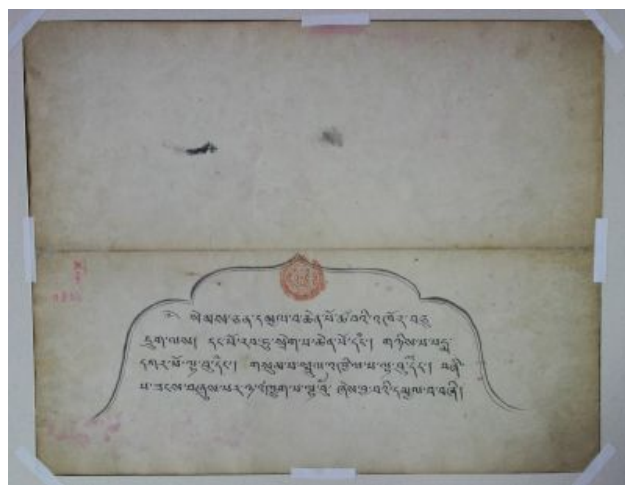 སེམས་ཅན་དམྱལ་བ་ཆེན་པོ་ཚ་བའི་འཁོར་བཅུ་
དྲུག་ལས། དང་པོ་རབ་ཏུ་སྲེག་པ་ཆེན་པོ་དང་། གཉིས་པ་པདྨ་
དཀར་པོ་ལྟ་བུ་དང་། གསུམ་པ་སྦྲུལ་འཁྱིལ་པ་ལྟ་བུ་དང་། བཞི་
པ་ཟངས་བཞུས་པར་ཉ་འཁྱུག་པ་ལྟ་བུ། ཞེས་བྱ་བའི་དམྱལ་བ་བཞི།